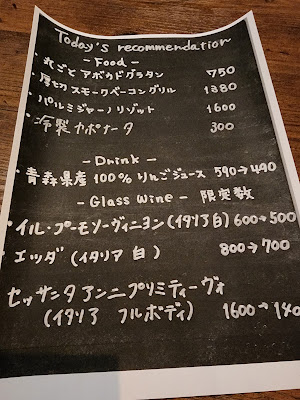 Today's recommendation
- Food -
・丸ごと アボカドグラタン 750
・厚切 スモークベーコングリル 1380
・パルミジャーノリゾット 1600
・冷製 カポナータ 300
- Drink -
・青森県産 100% りんごジュース 590→490
- Glass Wine - 限定数
・イル・プーモソーヴィニヨン(イタリア白) 600→500
・エッダ(イタリア 白) 800→700
セッサンタアンニプリミティーヴォ
(イタリア フルボディ) 1600→140